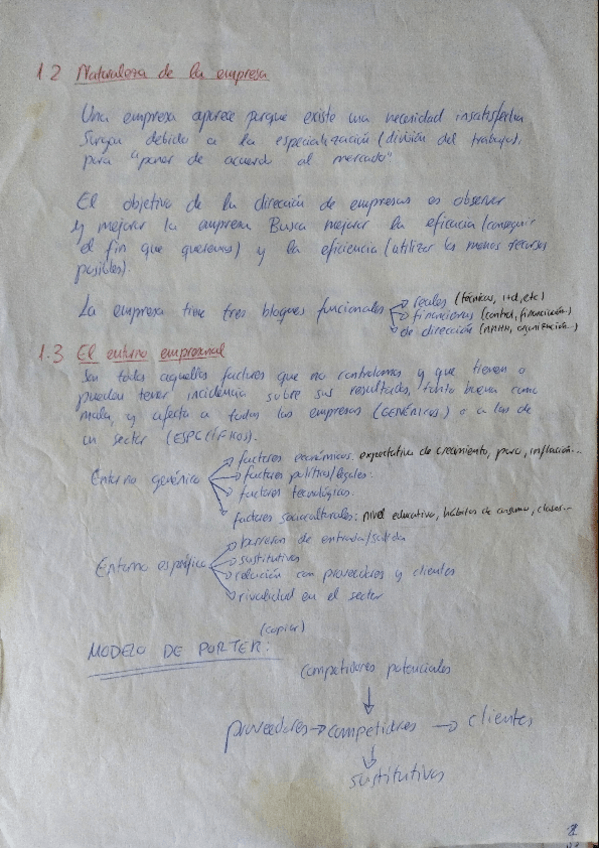 1.2 Naturaleza de la empresa
Una empresa aparece porque existe una necesidad insatisfecha
Surgen debido a la especialización (división del trabajo),
para "poner de acuerdo al mercado"
El objetivo de la dirección de empresas es observar
y mejorar la empresa Busca mejorar la eficacia (conseguir
el fin que queremos) y la eficiencia (utilizar los menos recursos
posibles).
La empresa tiene tres bloques funcionales → reales (técnicas, I+d, etc)
→ financieras (control, financiación..)
→ de dirección (RRHH, organización...)
1.3 El entorno empresarial
Son todos aquellos factores que no controlamos y que tienen o
pueden tener incidencia sobre sus resultados, tanto buena como
mala, y afecta a todas las empresas (GENÉRICOS) o a las de
un sector (ESPECÍFICOS).
Entorno genérico → factores económicos: expectativa de crecimiento, paro, inflación...
→ factores políticos/legales.
→ factores tecnológicos.
→ factores socioculturales: nivel educativo, hábitos de consumo, clases...
Entorno específico → barreras de entrada/salida
→ sustitutivos
→ relación con proveedores y clientes
→ rivalidad en el sector
(copiar)
MODELO DE PORTER:
competidores potenciales
↓
proveedores → competidores → clientes
↓
sustitutivos